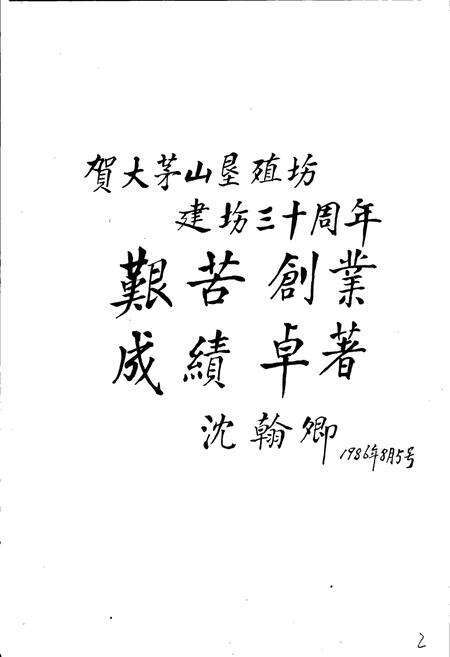 賀大茅山垦殖场
建场三十周年
艱苦創業
成績卓著
沈翰卿
1986年8月5号
2